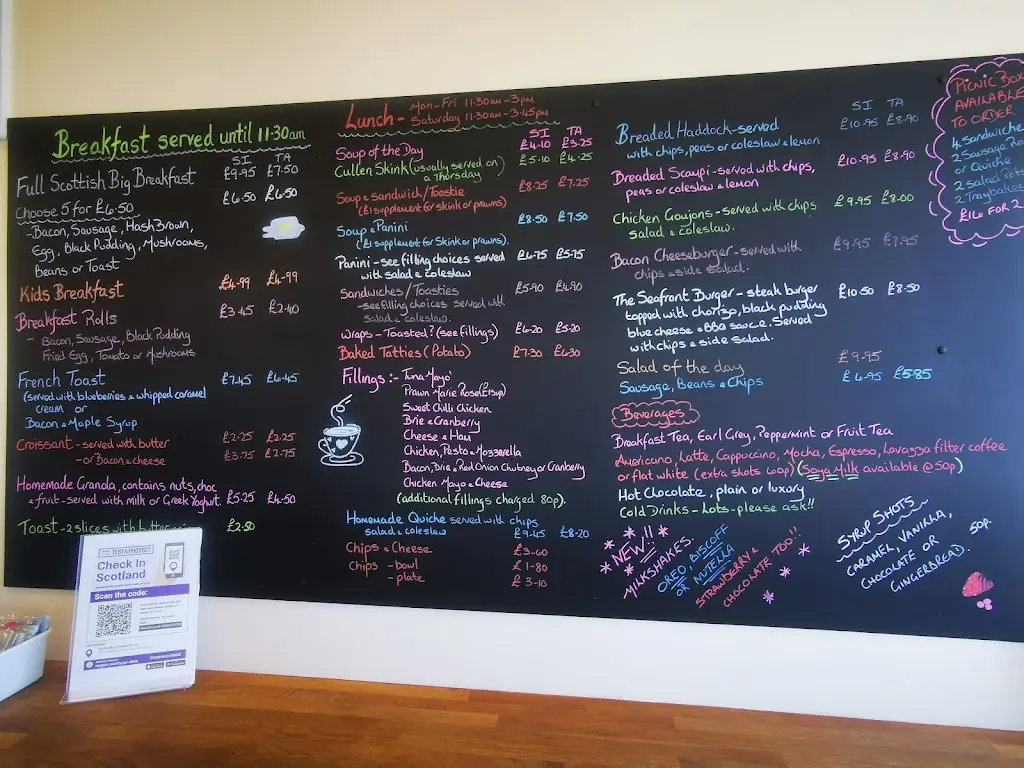 Breakfast served until 11·30am
SI TA
Full Scottish Big Breakfast £9·95 £7·50
Choose 5 for £6·50 £6·50 £6·50
- Bacon, Sausage, Hash Brown,
Egg, Black Pudding, Mushrooms,
Beans or Toast
Kids Breakfast £4·99 £4·99
Breakfast Rolls £3·45 £2·40
- Bacon, Sausage, Black Pudding
Fried Egg, Tomato or Mushrooms
French Toast £7·45 £6·45
(served with blueberries & whipped caramel
cream or
Bacon & Maple Syrup
Croissant - served with butter £2·25 £2·25
- or Bacon & cheese £3·75 £2·75
Homemade Granola, contains nuts, choc
& fruit - served with milk or Greek Yoghurt £5·25 £4·50
Toast - 2 slices with butter £2·50
Lunch - Mon - Fri 11·30am - 3pm
Saturday 11·30am - 3·45pm
SI TA
Soup of the Day £4·10 £3·25
Cullen Skink (usually served on £5·10 £4·25
a Thursday)
Soup & Sandwich/Toastie £8·25 £7·25
(£1 supplement for skink or prawns)
Soup & Panini £8·50 £7·50
(£1 supplement for skink or prawns).
Panini - see filling choices served £6·75 £5·75
with salad & coleslaw
Sandwiches/Toasties £5·90 £4·90
- see filling choices served with
salad & coleslaw.
Wraps - Toasted? (see fillings) £6·20 £5·20
Baked Tatties (Potato) £7·30 £6·30
Fillings :- Tuna Mayo
Prawn Marie Rose (£1 sup)
Sweet Chilli Chicken
Brie & Cranberry
Cheese & Ham
Chicken, Pesto & Mozzerella
Bacon, Brie & Red Onion Chutney or Cranberry
Chicken Mayo & Cheese
(additional fillings charged 80p).
Homemade Quiche served with chips
salad & coleslaw £9·45 £8·20
Chips & Cheese £3·60
Chips - bowl £1·80
- plate £3·10
SI TA
Breaded Haddock - served £10·95 £8·90
with chips, peas or coleslaw & lemon
Breaded Scampi - served with chips, £10·95 £8·90
peas or coleslaw & lemon
Chicken Goujons - served with chips £9·95 £8·00
Salad & coleslaw.
Bacon Cheeseburger - served with £9·95 £7·95
chips & side salad.
The Seafront Burger - steak burger £10·50 £8·50
topped with chorizo, black pudding
blue cheese & BBQ sauce. Served
with chips & side salad.
Salad of the day £9·95
Sausage, Beans & Chips £6·95 £5·85
Beverages
Breakfast Tea, Earl Grey, Peppermint or Fruit Tea
Americano, Latte, Cappuccino, Mocha, Espresso, Lavazza filter coffee
or flat white (extra shots 60p) (Soya Milk available @ 50p)
Hot Chocolate, plain or luxury
Cold Drinks - Lots - please ask!!
NEW!!
MILKSHAKES.
OREO, BISCOFF
OR NUTELLA
STRAWBERRY &
CHOCOLATE TOO!!
SYRUP SHOTS ~
CARAMEL, VANILLA,
CHOCOLATE OR
GINGERBREAD. 50p.
PICNIC BOX
AVAILABLE
TO ORDER
4 Sandwiches
2 Sausage Ro
or Quiche
2 Salad Pots
2 Traybakes
£16 FOR 2
TEST & PROTECT
Check In
Scotland
Scan the code: